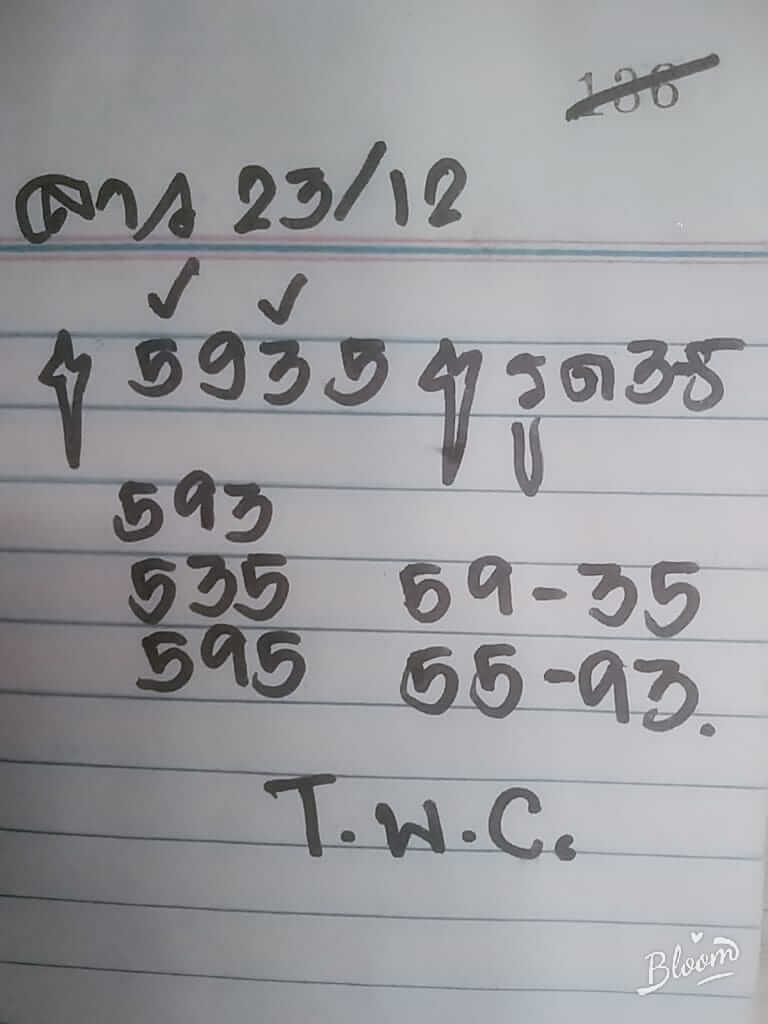 136
ลาว 23/12
5935 รูด 3-5
593
535 59-35
595 55-93.
T.W.C.
Bloom